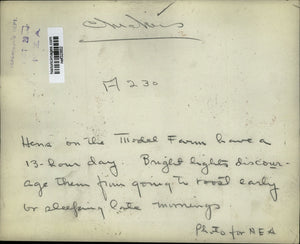 A 230
Hens on the Model Farm have a
13-hour day. Bright lights discour-
age them from going to roost early
or sleeping late mornings
Photo for NEA